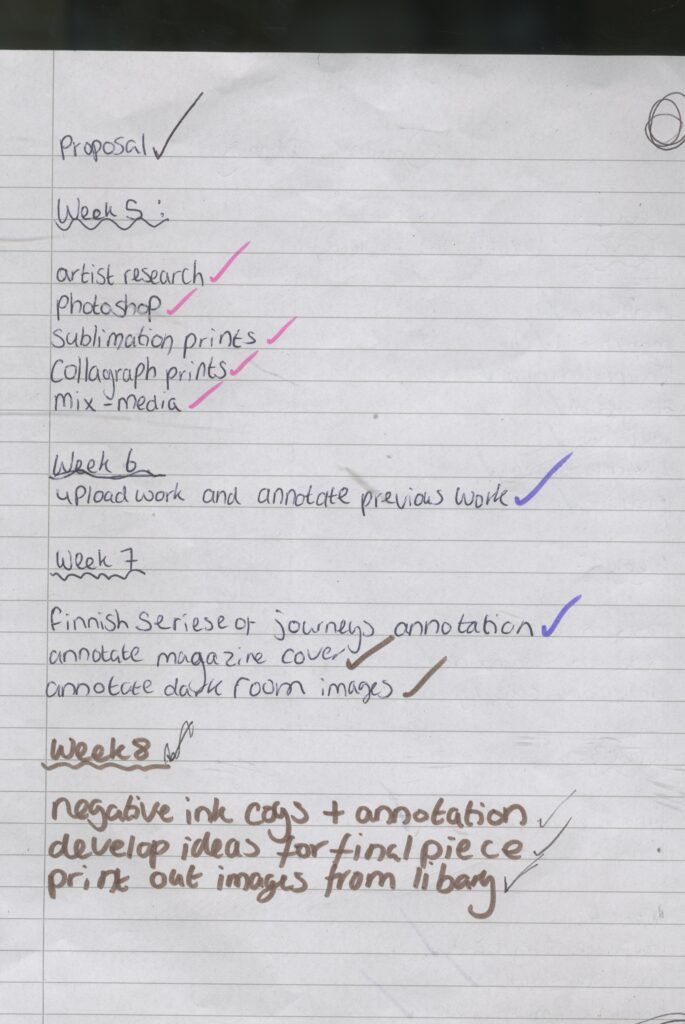 Proposal ✓
Week 5 :
artist research ✓
Photoshop ✓
Sublimation prints ✓
Collagraph prints ✓
mix-media ✓
Week 6
upload work and annotate previous work ✓
Week 7
finnish Seriese of journeys annotation ✓
annotate magazine cover ✓
annotate dark room images ✓
Week 8 ✓
negative ink cogs + annotation ✓
develop ideas for final piece ✓
print out images from libary ✓